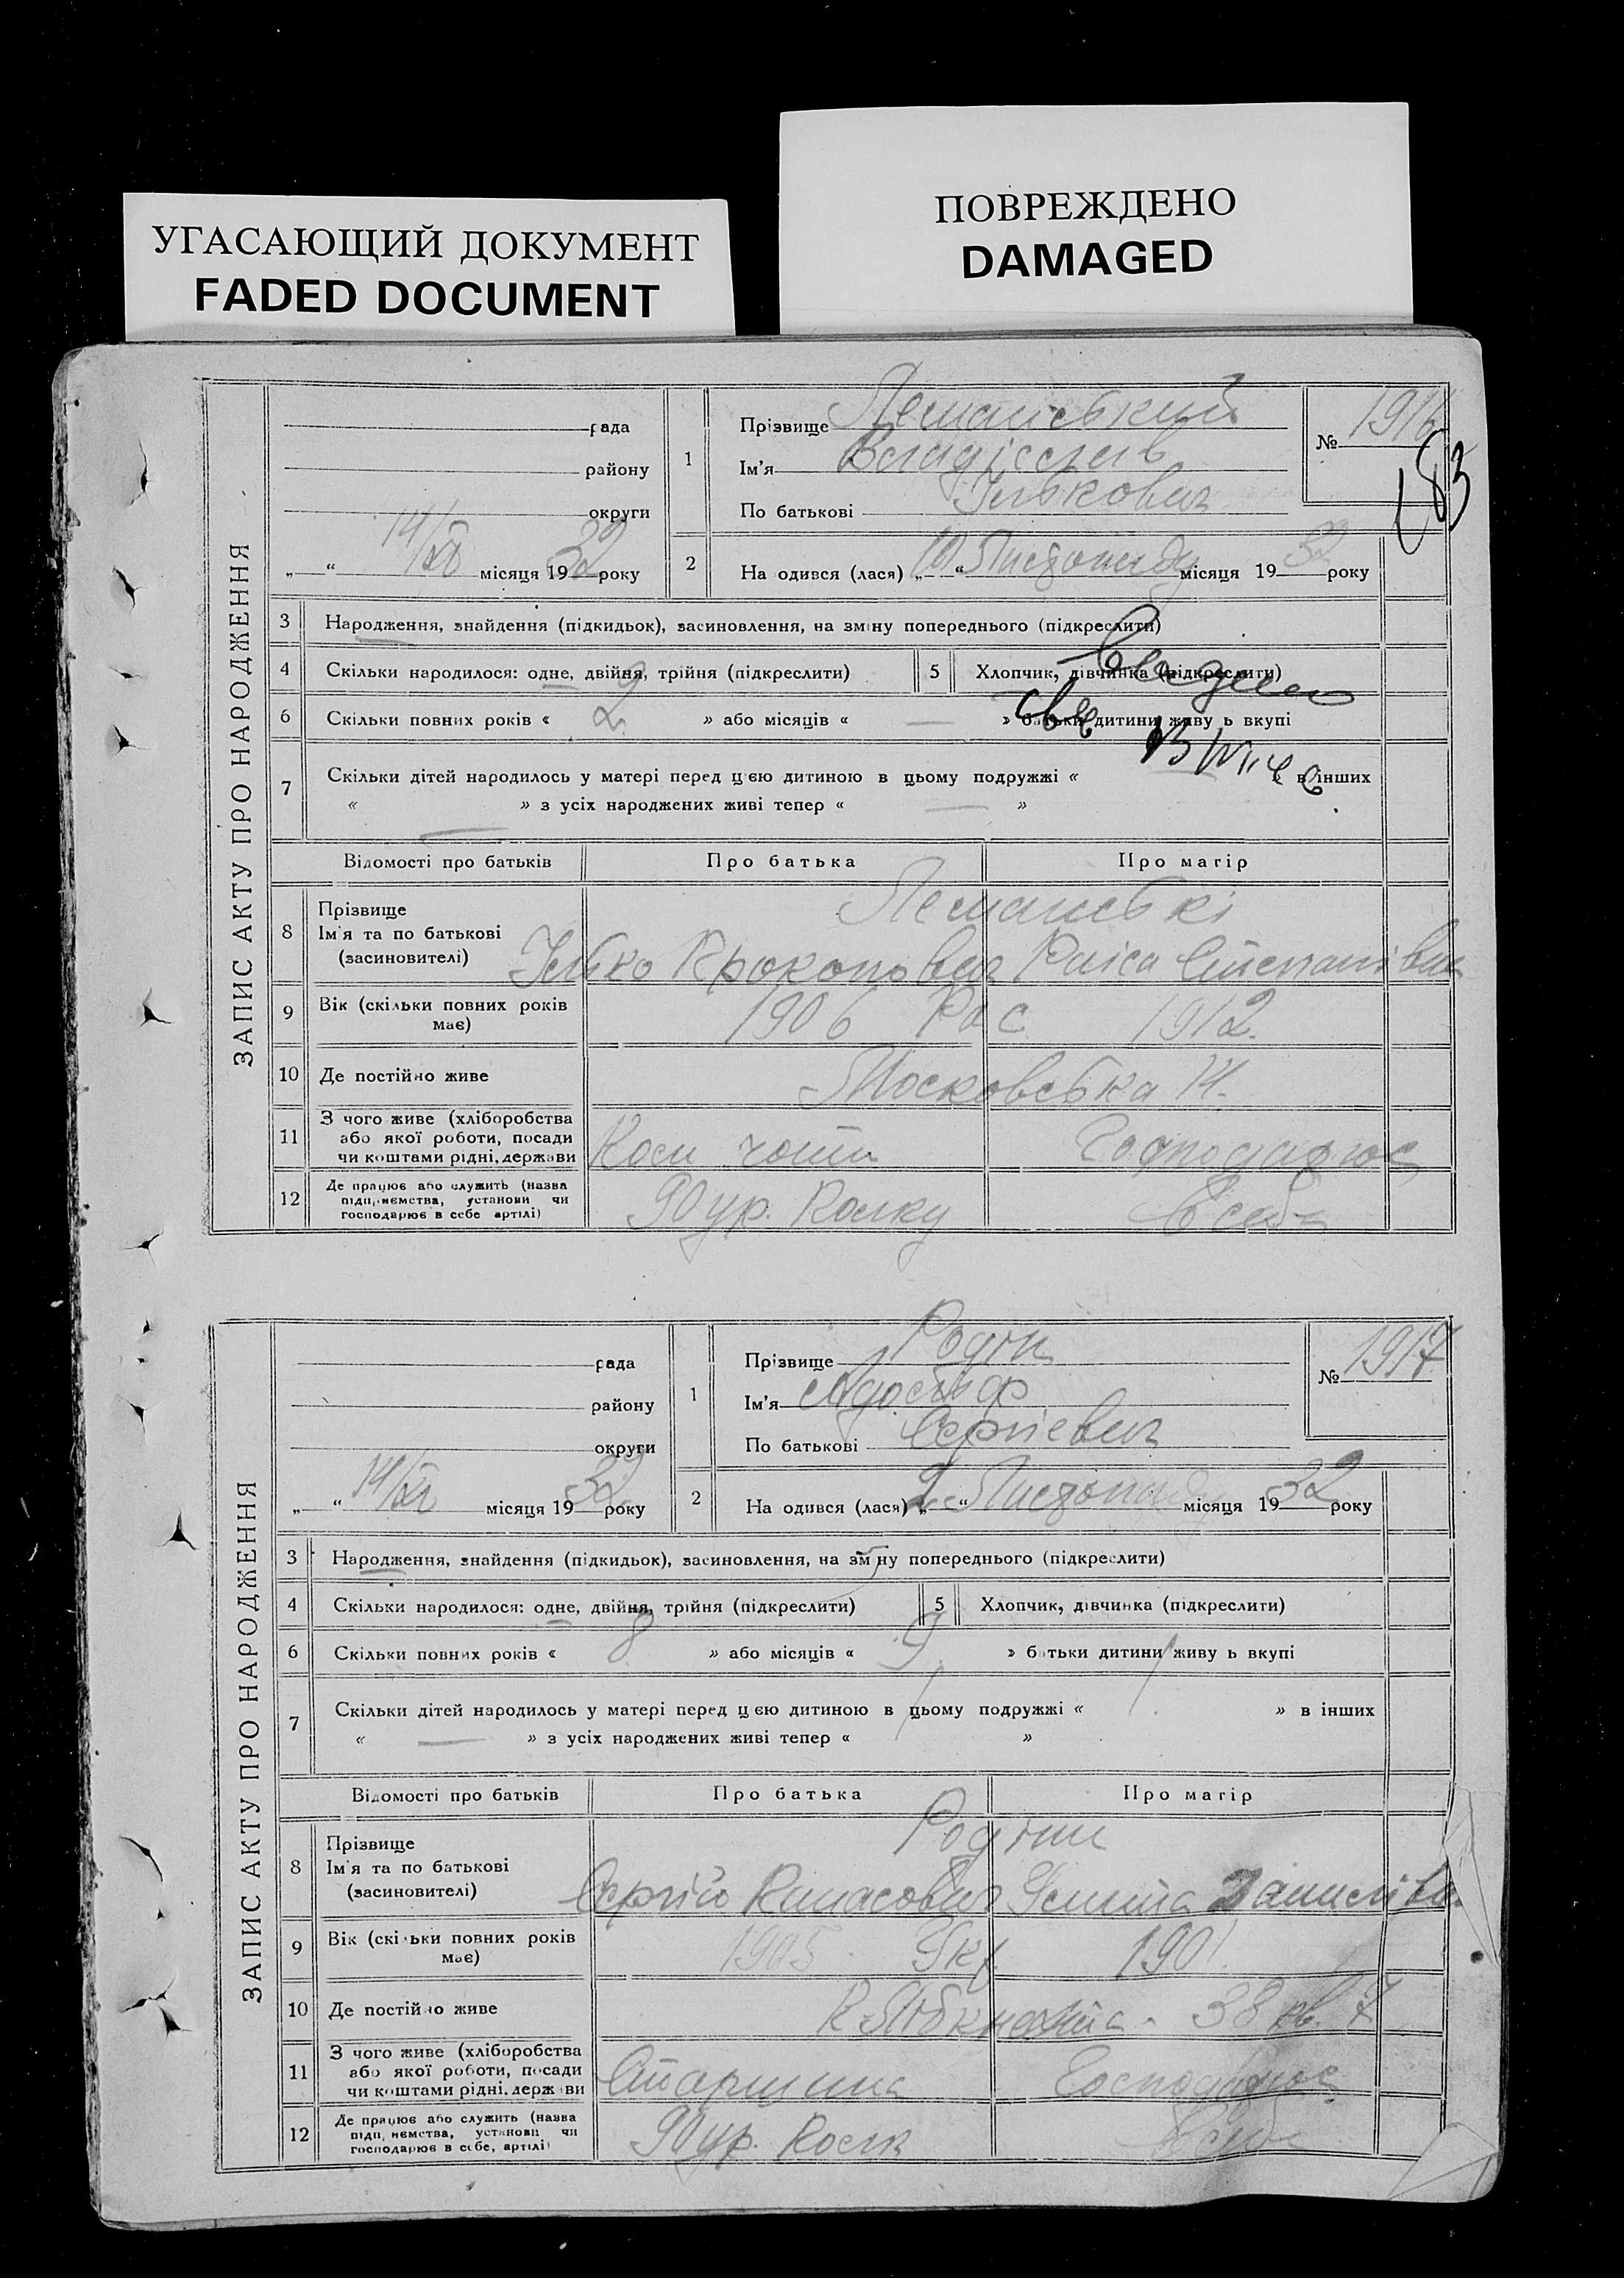 УГАСАЮЩИЙ ДОКУМЕНТ
FADED DOCUMENT
ПОВРЕЖДЕНО
DAMAGED
ЗАПИС АКТУ ПРО НАРОДЖЕННЯ
рада
району
округи
„ “ 14/XI місяця 1932 року
1
Прізвище
Ім'я
По батькові Ількович
№ 1916
183
2 На одився (лася) „10“ Листопаду місяця 1932 року
3 Народження, знайдення (підкидьок), засиновлення, на зміну попереднього (підкреслити)
4 Скільки народилося: одне, двійня, трійня (підкреслити)
5 Хлопчик, дівчинка (підкреслити)
6 Скільки повних років « 2 » або місяців « — » батьки дитини живу ь вкупі
7 Скільки дітей народилось у матері перед цією дитиною в цьому подружжі « » в інших
« — » з усіх народжених живі тепер « — »
Відомості про батьків Про батька Про матір
8 Прізвище
Ім'я та по батькові
(засиновителі)
Ілько Прокопович Раїса Степанівна
9 Вік (скільки повних років має) 1906 Рос 1912.
10 Де постійно живе Московська 14.
11 З чого живе (хліборобства
або якої роботи, посади
чи коштами рідні, держави
Господарює
12 Де працює або служить (назва
підприємства, установи чи
господарює в себе артілі)
90 ур. Полку В себе
ЗАПИС АКТУ ПРО НАРОДЖЕННЯ
рада
району
округи
„ “ 14/XI місяця 1932 року
1
Прізвище Родін
Ім'я
По батькові Сергієвич
№ 1917
2 На одився (лася) „2“ Листопаду місяця 1932 року
3 Народження, знайдення (підкидьок), засиновлення, на зміну попереднього (підкреслити)
4 Скільки народилося: одне, двійня, трійня (підкреслити)
5 Хлопчик, дівчинка (підкреслити)
6 Скільки повних років « 8 » або місяців « » батьки дитини живу ь вкупі
7 Скільки дітей народилось у матері перед цією дитиною в цьому подружжі « 1 » в інших
« — » з усіх народжених живі тепер « »
Відомості про батьків Про батька Про матір
8 Прізвище
Ім'я та по батькові
(засиновителі)
Родіни
Сергій Данилівна
9 Вік (скільки повних років має) 1905 Укр. 1901.
10 Де постійно живе К Лібкнехта. 38 кв. 7
11 З чого живе (хліборобства
або якої роботи, посади
чи коштами рідні, держави
Старшина Господарює
12 Де працює або служить (назва
підприємства, установи чи
господарює в себе, артілі)
90 ур. Полк В себе